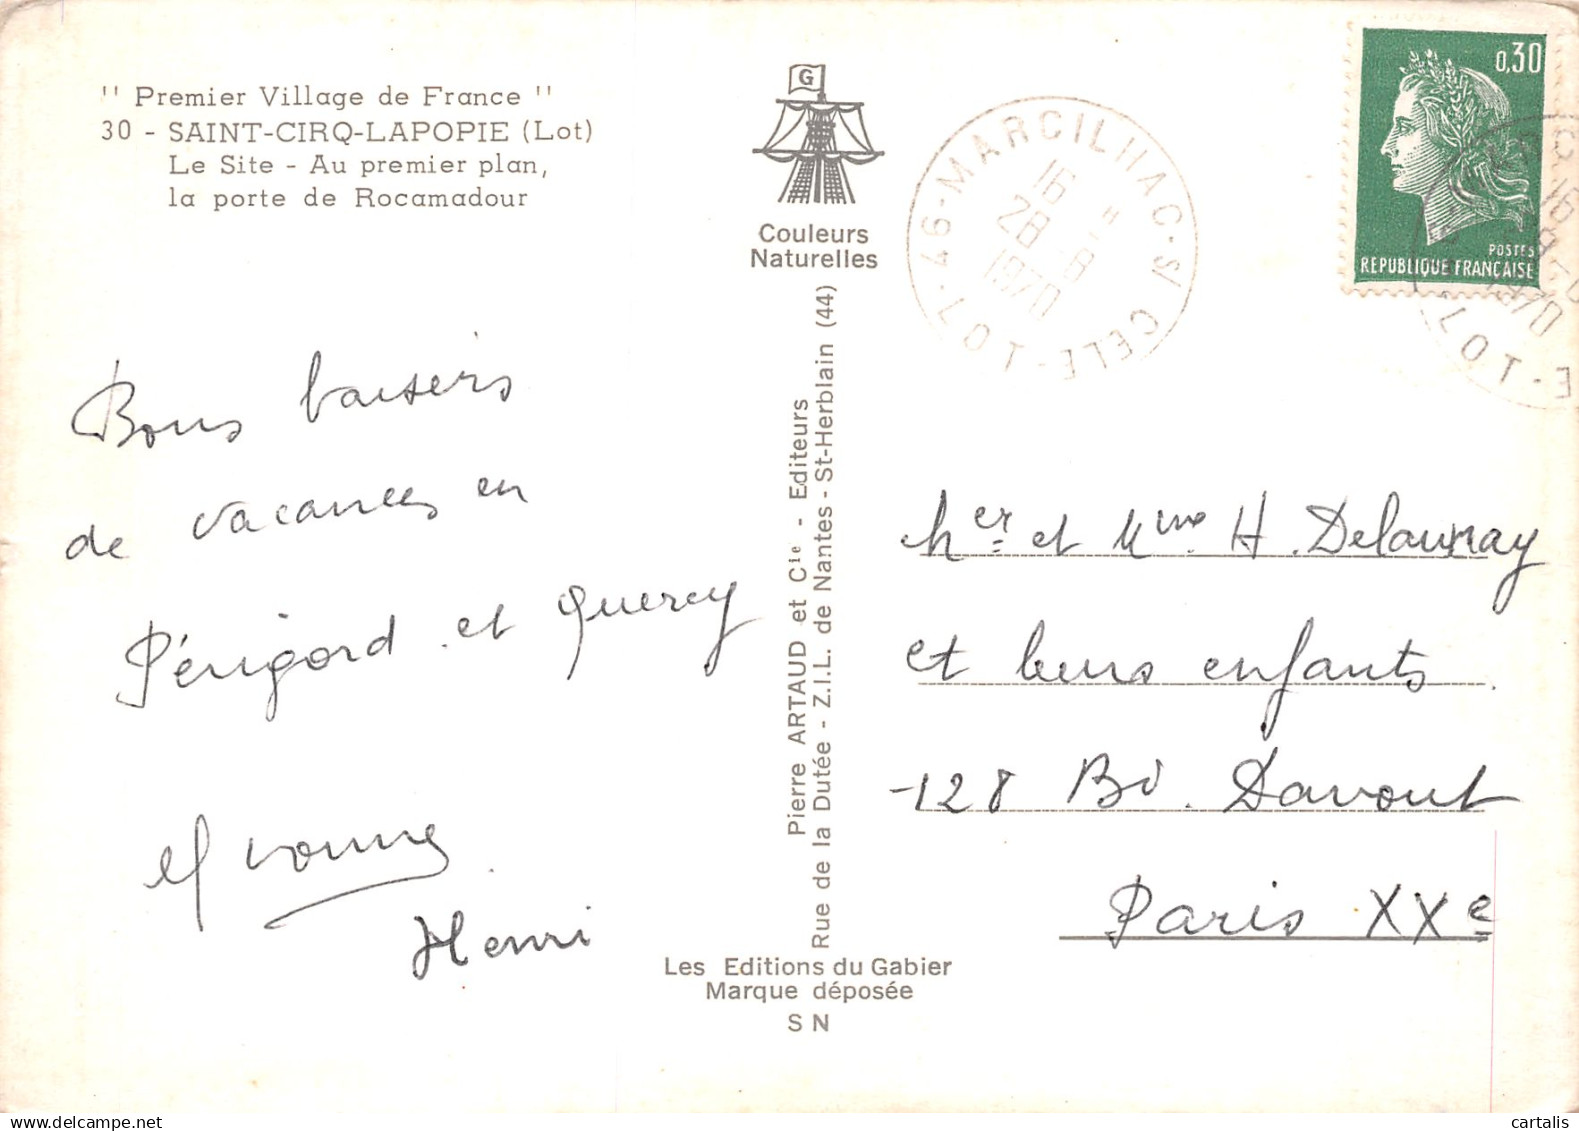 " Premier Village de France "
30 - SAINT-CIRQ-LAPOPIE (Lot)
Le Site - Au premier plan,
la porte de Rocamadour
G
Couleurs
Naturelles
46-MARCILHAC-S/CELE-LOT
16
28 -8
1970
0,30
POSTES
REPUBLIQUE FRANÇAISE
16
1970
E-LOT
Bons baisers
de vacances en
Périgord et Quercy
Yvonne
Henri
Pierre ARTAUD et Cie - Editeurs
Rue de la Dutée - Z.I.L. de Nantes - St-Herblain (44)
Mer et Mme H. Delaunay
et leurs enfants
128 Bd. Davout
Paris XXe
Les Editions du Gabier
Marque déposée
S N
cartalis